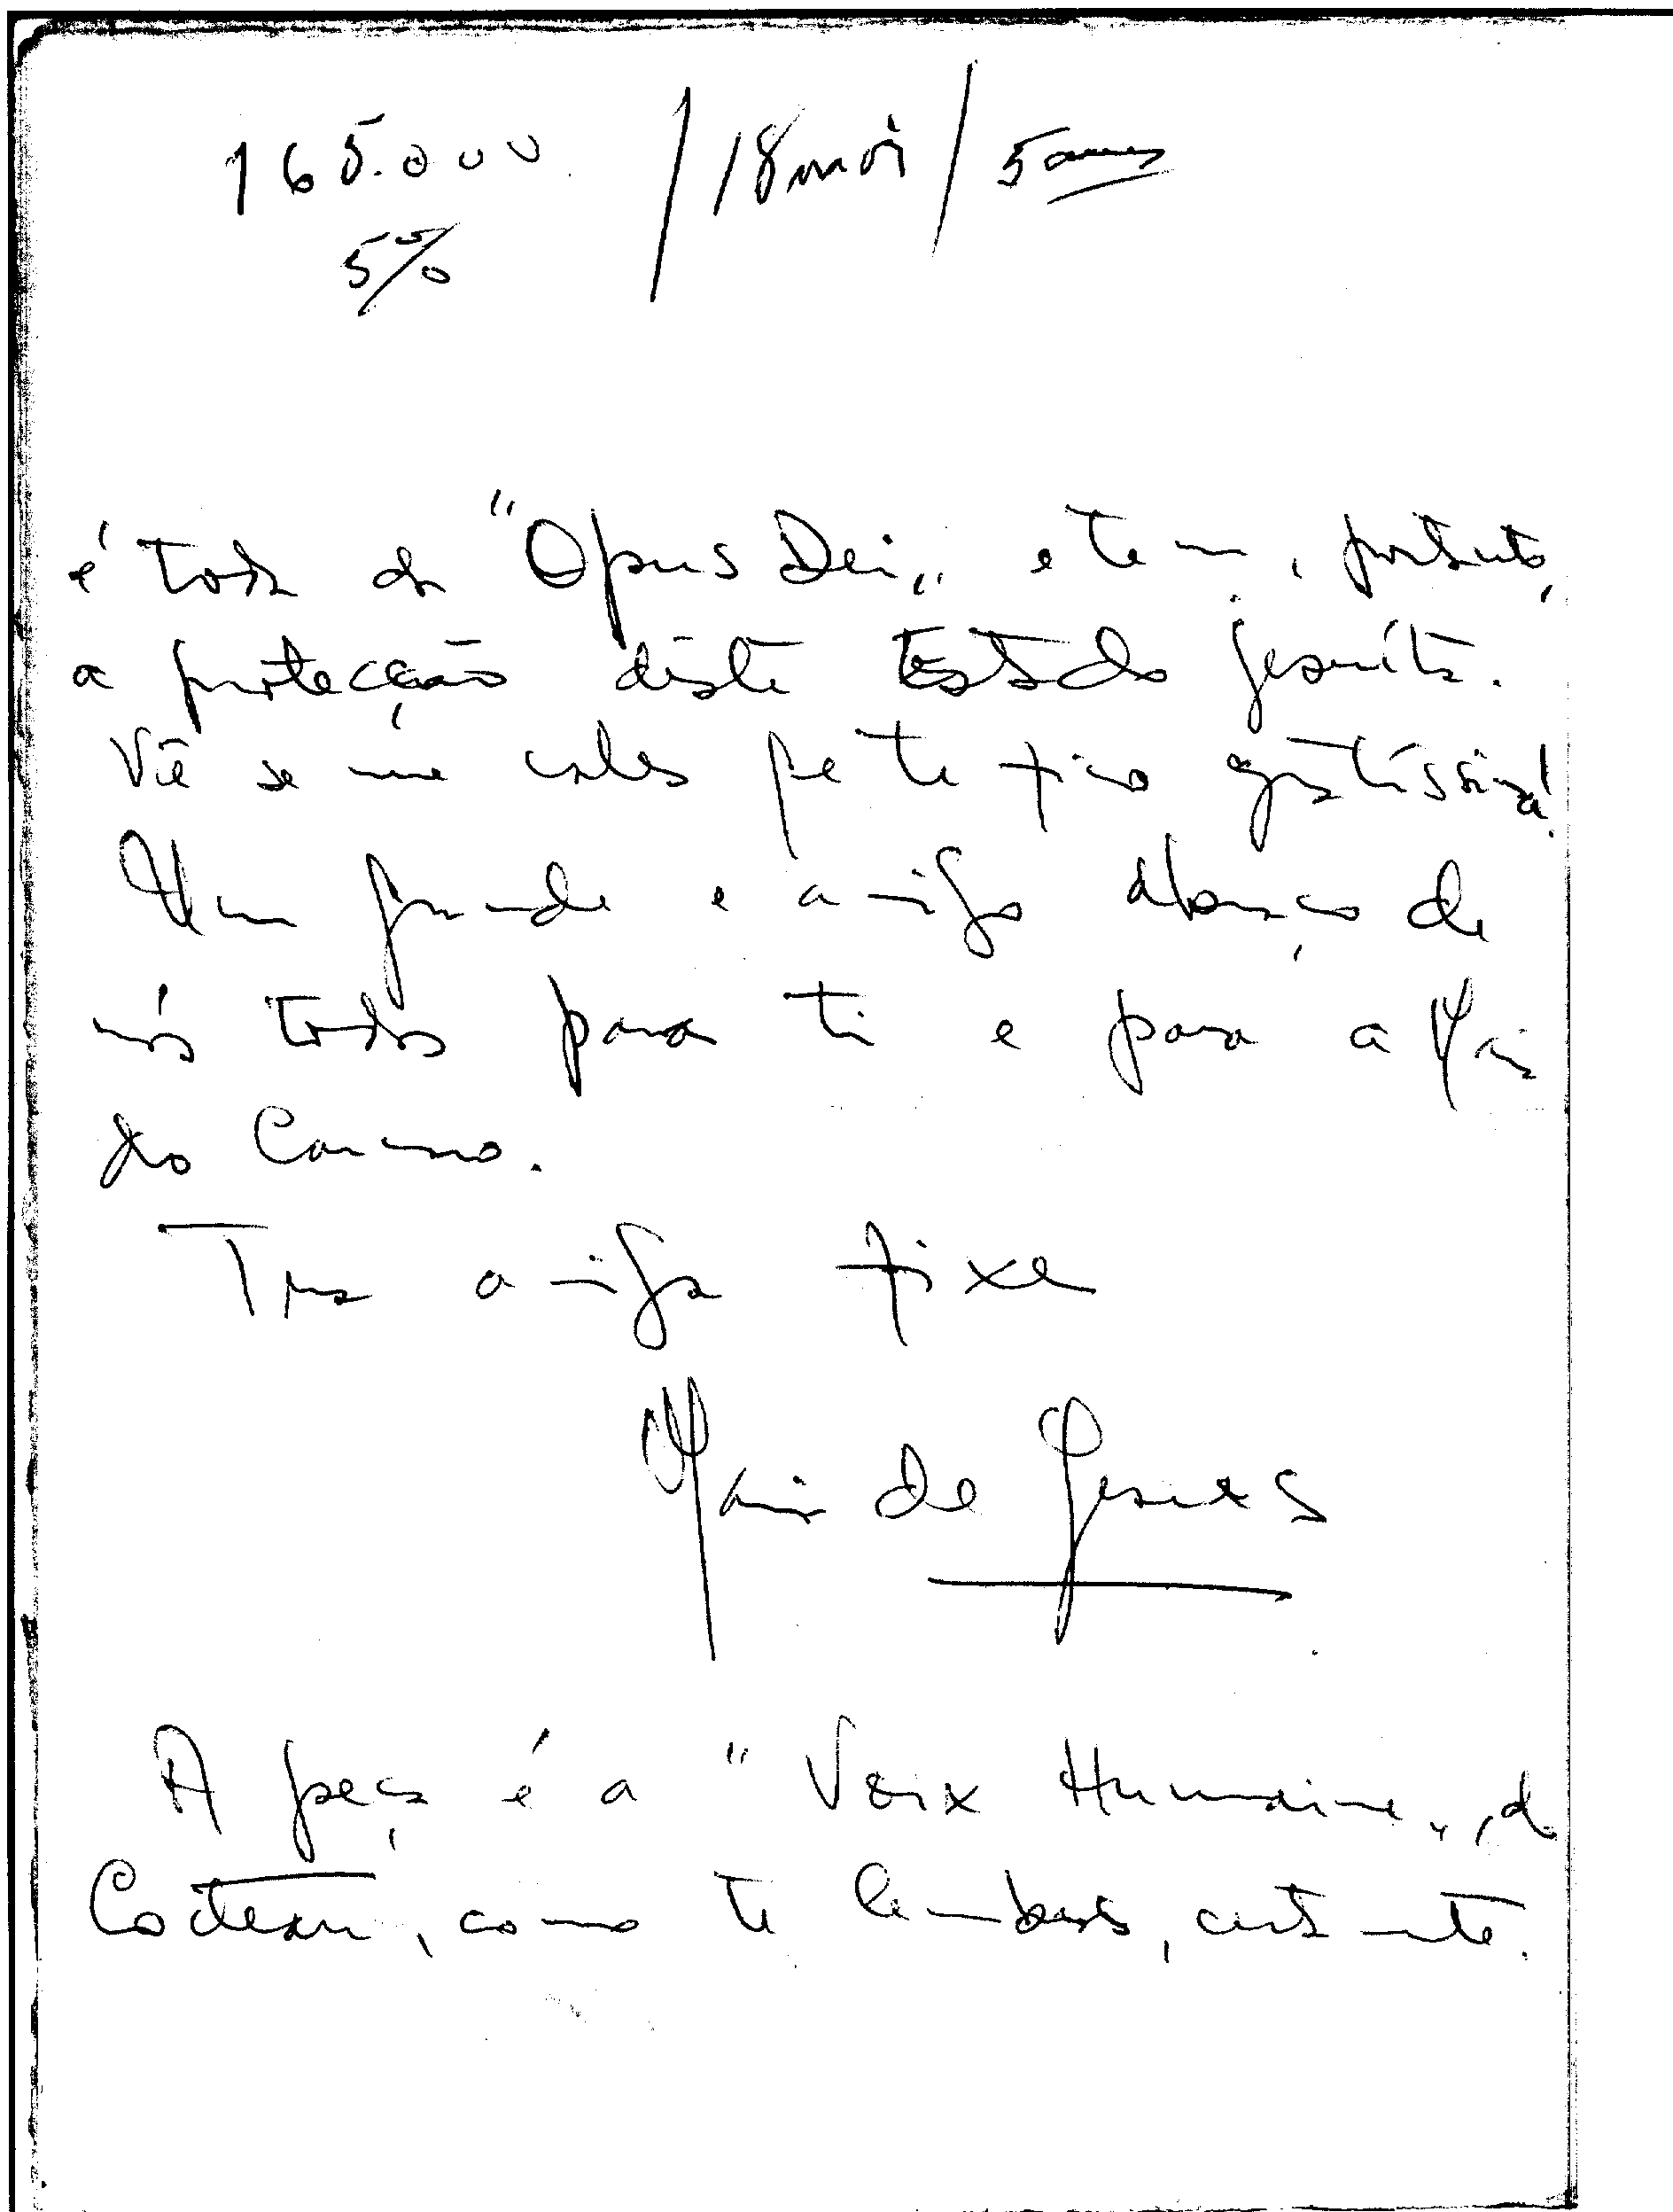 165.000 / 18 mois / 5 anos
5%
é toda da "Opus Dei" e tem, portanto,
a protecção deste Estado jesuíta.
Vê se me vales que te fico gratíssima!
Um grande e amigo abraço de
nós todos para ti e para a Maria
do Carmo.
Tua amiga fixe
Maria de Jesus
A peça é a "Voix Humaine", de
Cocteau, como te lembras, certamente.